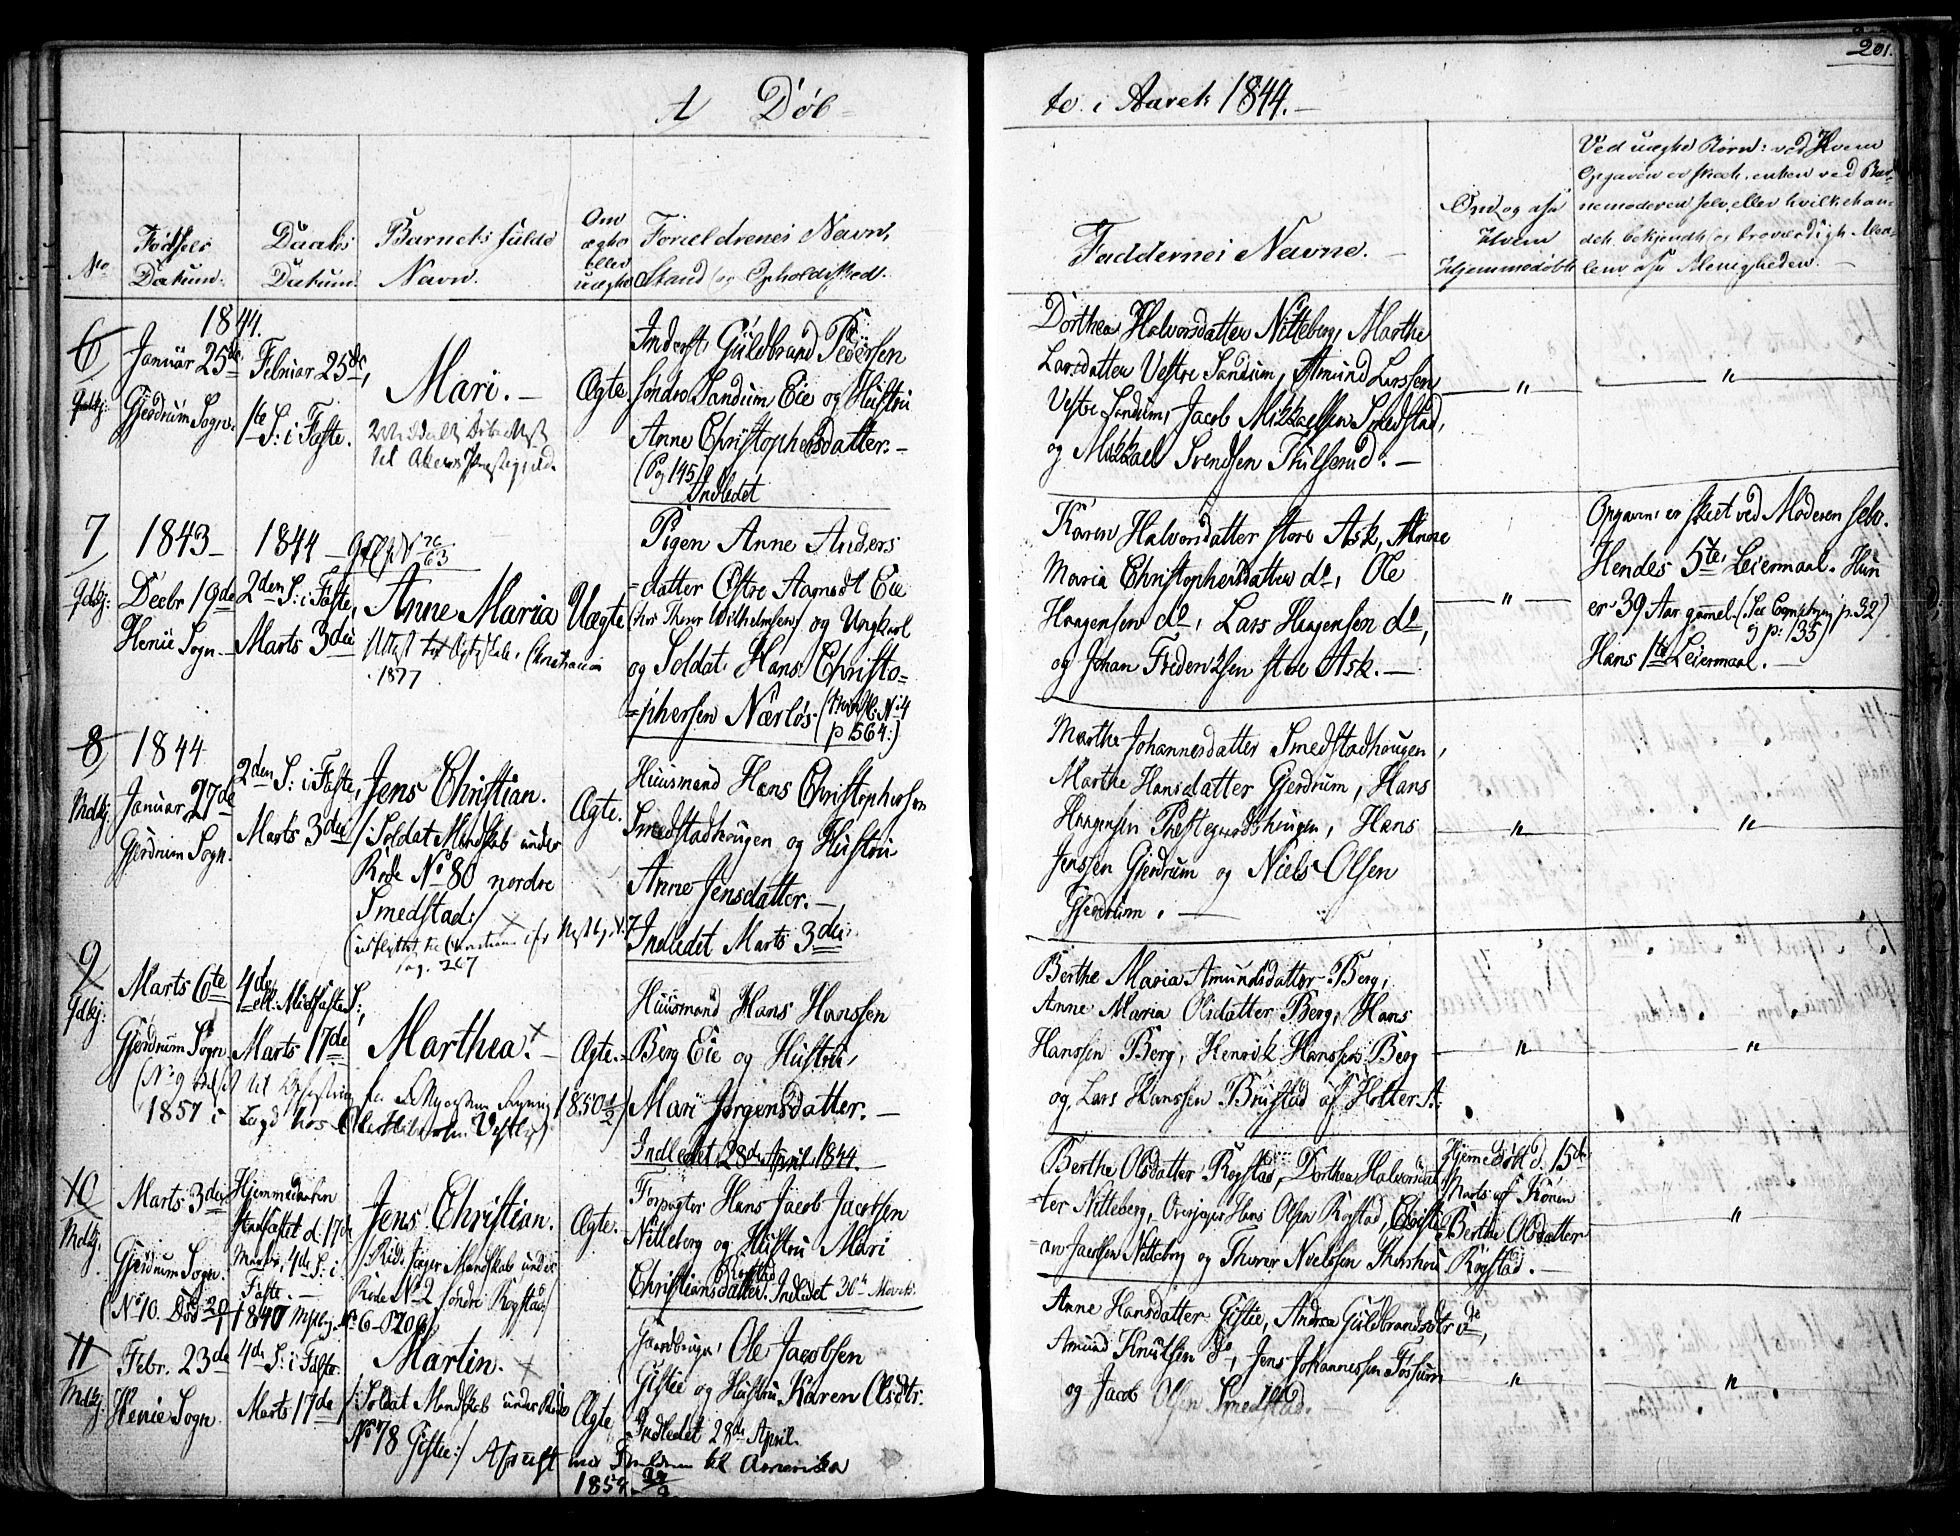 201.
A Døb=
te i Aaret 1844.—
No
Fødsels
Datum:
Daabs
Datum.
Barnets fulde
Navn.
Om
ægte
eller
uægte
Forældrenes Navn,
Stand og Opholdssted.
Faddernes Navne.
Om og af
Hvem
Hjemmedøbt
Ved uægte Børn: ved Hvem
Opgaven er skeet, enten ved Bar=
nemoderen selv, eller hvilket an=
det bekjendt og troværdigt Med=
lem af Menigheden.
6
1844.
Januar 25de
Gjerdrum Sogn.
Februar 25de,
1te S: i Faste.
Mari.—
til Akers Præstegjeld
Ægte
Inderst Guldbrand Pedersen
søndre Sandum Eie og Hustru
Anne Christophersdatter.—
(Pg 145)
Indledet
Dorthea Halvorsdatter Nitteberg, Marthe
Larsdatter Vestre Sandum, Amund Larssen
Vestre Sandum, Jacob Mikkelsen Smedstad,
og Mikkael Svendsen Thulserud.—
"
"
7
Qdkj:
1843—
Decbr 19de
Henie Sogn.—
1844—
2den S: i Faste,
Marts 3die
Anne Maria
1877
Uægte
Pigen Anne Anders
=datter Østre Aagnæst Eie
og Ungkarl
og Soldat Hans Christo=
=phersen Nærløs.
p 564:)
Karen Halvorsdatter store Ask, Anne
Maria Christophersdatter do, Ole
Haagensen do, Lars Haagensen do,
og Johan Frederiksen store Ask.—
"
Opgaven er skeet ved Moderen selv.
Hendes 5te Leiermaal. Hun
er 39 Aar gammel.
og p: 135)
Hans 1te Leiermaal.—
8
Mdkj:
1844
Januar 27de
Gjerdrum Sogn.
2den S: i Faste,
Marts 3die
Jens Christian.
/:Soldat Mandskab under
Rode No 80 nordre
Smedstad:/
Pag. 267
Ægte.
Huusmand Hans Christophersen
Smedstadhaugen og Hustru
Anne Jensdatter.—
Indledet Marts 3die
Marthe Johannesdatter Smedstadhaugen,
Marthe Hansdatter Gjerdrum, Hans
Haagensen Præstegaardshaugen, Hans
Jenssen Gjerdrum og Niels Olsen
Gjerdrum.—
"
"
9
Qdkj:
Marts 6te
Gjerdrum Sogn.
4de
ell. Midfaste S:,
Marts 17de
Marthea.—
(No 9
1857 i
Lagd hos
1850
Ægte.
Huusmand Hans Hanssen
Berg Eie og Hustru,
Mari Jørgensdatter.—
Indledet 28de April 1844.
Berthe Maria Amundsdatter Berg,
Anne Maria Olsdatter Berg, Hans
Hanssen Berg, Henrik Hanssen Berg
og Lars Hanssen Brustad af Holter A:
"
"
10
Mdkj.
Marts 3die
Gjerdrum Sogn.
Hjemmedaaben
stadfæstet d. 17de
Marts, 4de S: i
Faste.—
Jens Christian.
/:Rode Jæger Mandskab under
Rode No 2 søndre Rogstad:/
(No 10. Død
Ægte.
Forpagter Hans Jacob Jacobsen
Nitteberg og Hustru Mari
Rogstad
Christiansdatter. Indledet 30te Marts.
Berthe Olsdatter Rogstad, Dorthea Halvorsdat=
=ter Nitteberg, Overjæger Hans Olsen Rogstad, Christi=
=an Jacobsen Nitteberg og Thorer Nielsen
Hjemmedøbt d. 15de
Marts af Konen
Berthe Olsdatter
Rogstad.—
"
11
Mdkj.
Febr. 23de
Henie Sogn
4de S: i Faste.
Marts 17de
Martin.
/:Soldat Mandskab under Rode
No 78 Gistie:/ Afreist med Forældrene til Amerika
1854
Ægte
Gaardbruger Ole Jacobsen
Gistie og Hustru Karen Olsdtr.
Indledet 28de April.
Anne Hansdatter Gistie, Andrea Guldbrandsdtr do,
Amund Knutsen do, Jens Johannessen Fossum
og Jacob Olsen Smedstad.—
"
"